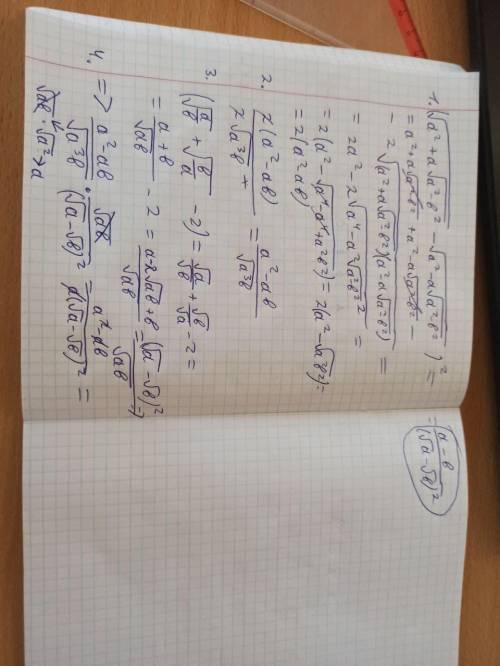 1. (√(a² + a√(a²-b²)) - √(a² - a√(a²-b²)))² =
= a² + a√(a²-b²) + a² - a√(a²-b²) -
- 2√((a² + a√(a²-b²))(a² - a√(a²-b²))) =
= 2a² - 2√(a⁴ - a²√(a²-b²)²) =
= 2(a² - √(a⁴ - a⁴ + a²b²)) = 2(a² - √(a²b²)) =
= 2(a² - ab)
2. 2(a² - ab) / 2√(a³b) = (a² - ab) / √(a³b)
3. (√(a/b) + √(b/a) - 2) = √a/√b + √b/√a - 2 =
= (a + b)/√(ab) - 2 = (a - 2√(ab) + b)/√(ab) = (√a - √b)²/√(ab) =>
4. => (a² - ab)/√(a³b) · √(ab)/(√a - √b)² = (a² - ab)/(a(√a - √b)²) =
√(ab) · √(a²) → a
= (a - b)/(√a - √b)²